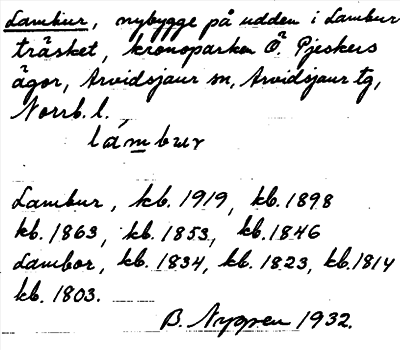 Lambur, nybygge på udden i Lambur
träsket, kronoparken Ö. Pjeskers
ägor, Arvidsjaur sn, Arvidsjaur tg,
Norrb. l.
lámbur
Lambur, kb. 1919, kb. 1898
kb. 1863, kb. 1853, kb. 1846
Lambor, kb. 1834, kb. 1823, kb. 1814
kb. 1803.
B. Nygren 1932.